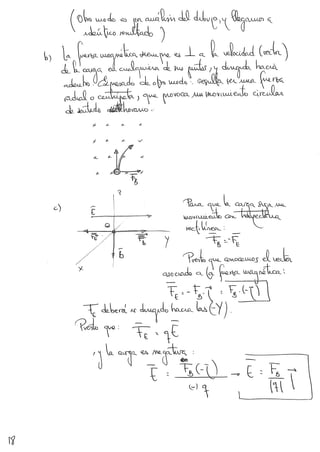 (Otro modo es por análisis del dibujo, y llegamos a
idéntico resultado)
b) La fuerza magnética siempre es ⊥ a la velocidad (vector)
de la carga en cualquiera de sus puntos, y dirigida hacia
adentro. Expresado de otro modo: resulta ser una fuerza
radial o centrípeta, que provoca un movimiento circular
de sentido horario.
F_B
c)
Z
E
Q
F_E F_B Y
B
X
Para que la carga siga un
movimiento con trayectoria
rectilínea:
F_B = -F_E
Puesto que conocemos el vector
asociado a la fuerza magnética:
F_E = -F_B · j = F_B · (-j)
F_E deberá ir dirigido hacia las (-Y).
Puesto que: F_E = qE
, y la carga es negativa:
E = F_B (-j) / (-) q → E = F_B / |q| j
18